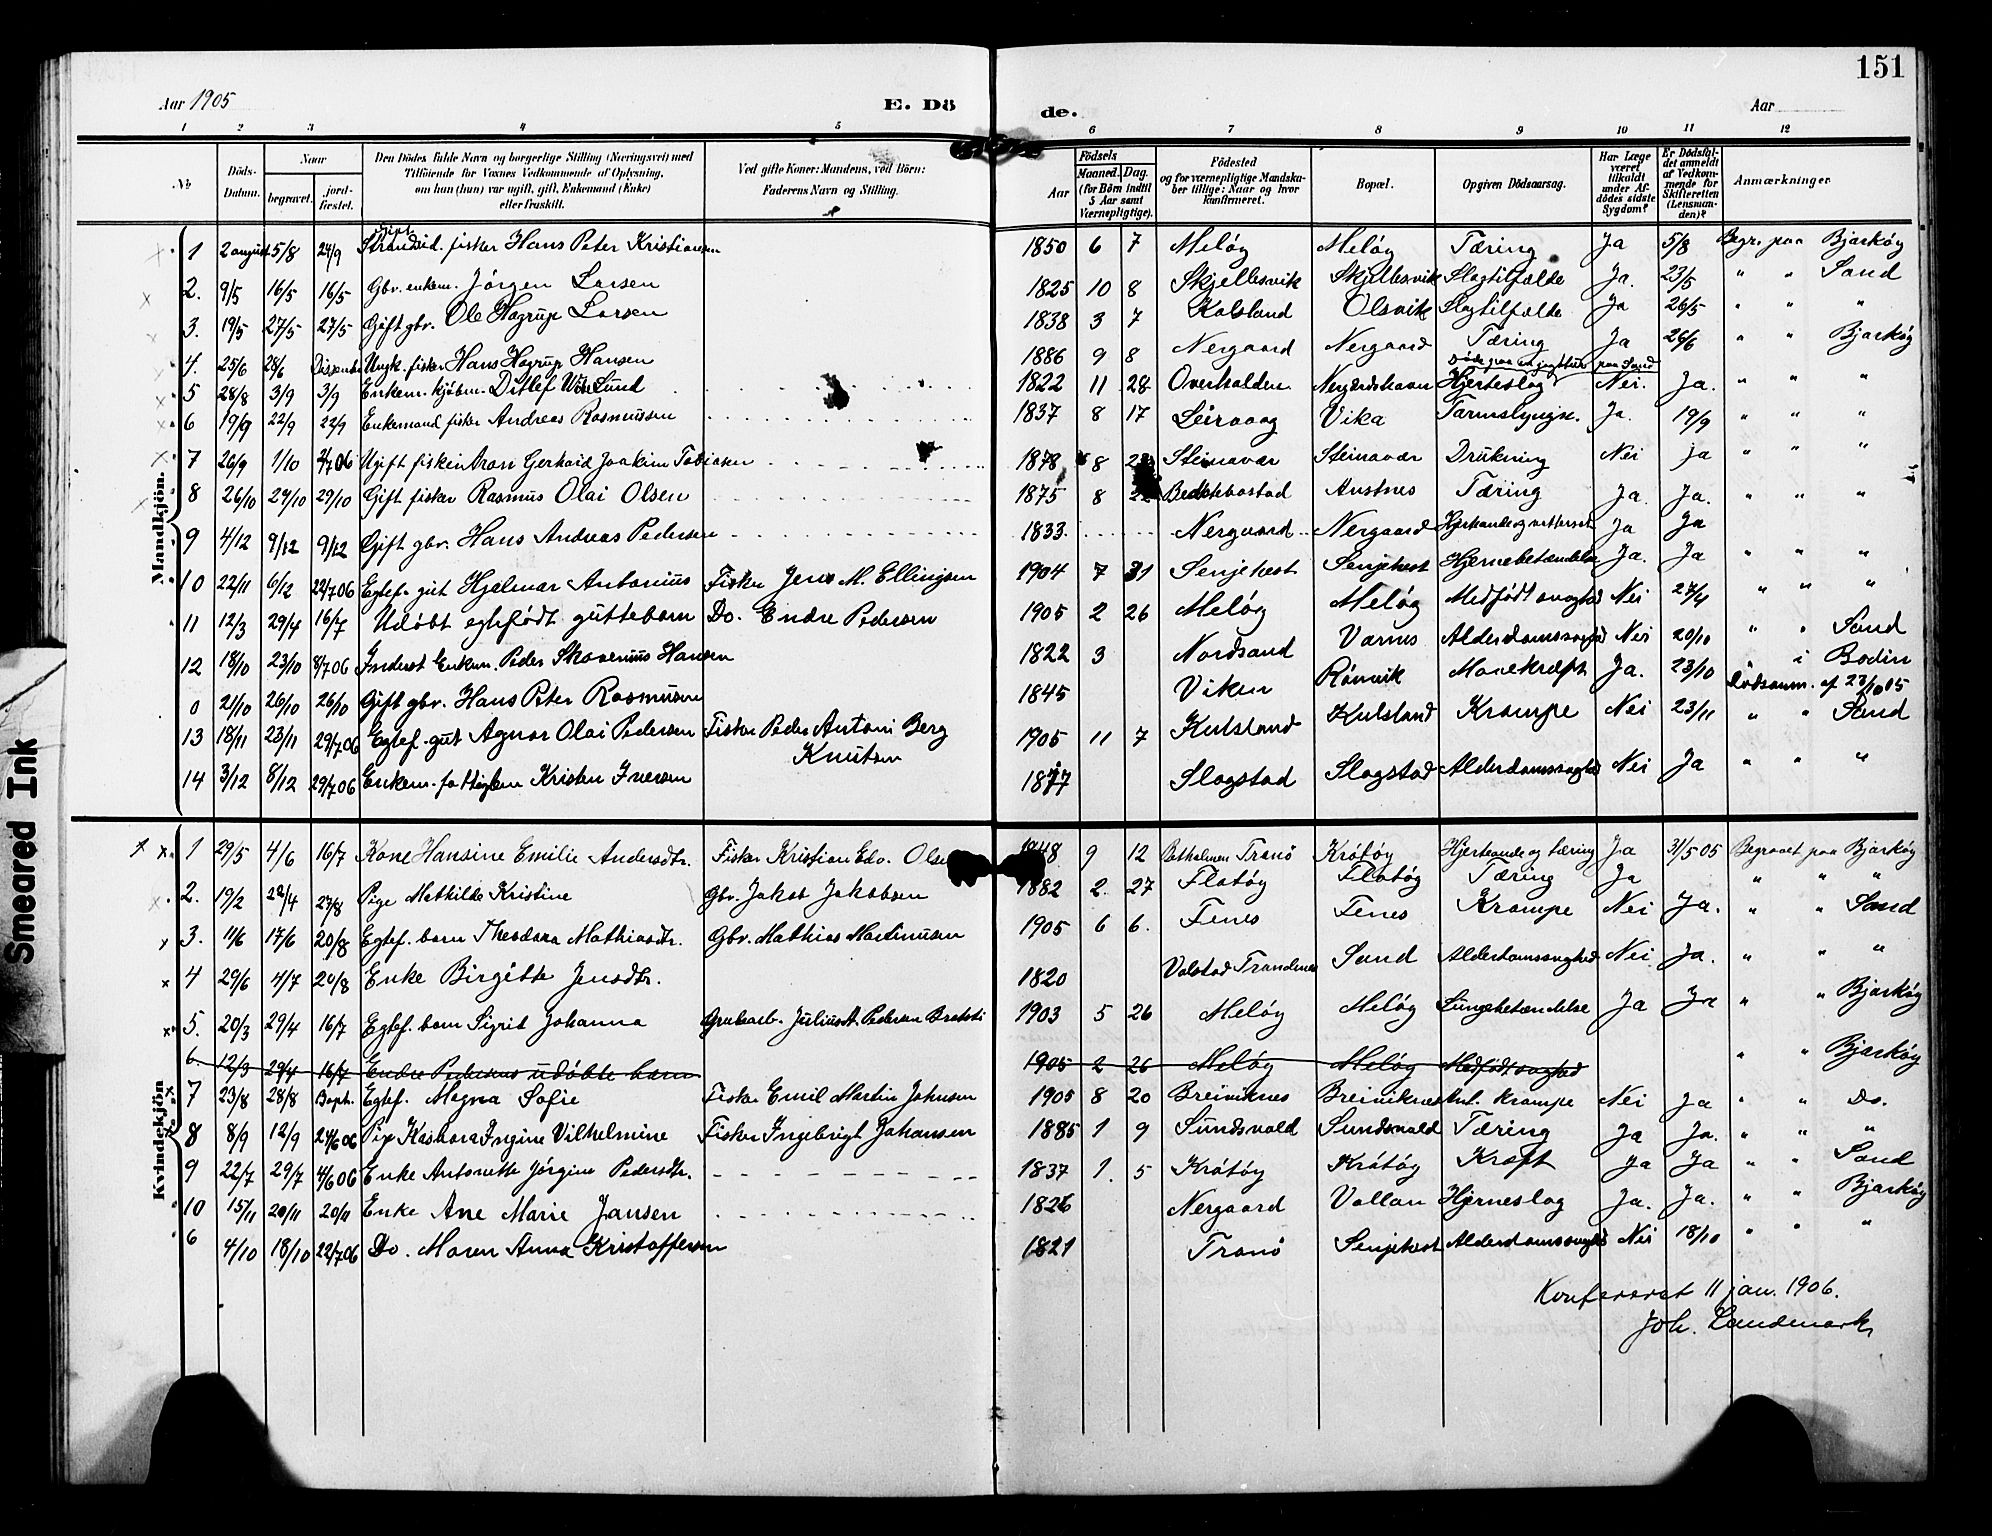 151
Aar 1905
E. Dö
de.
Aar
1 2 3 4 5 6 7 8 9 10 11 12
№
Döds-Datum.
Naar
begravet.
jord-fæstet.
Den Dödes fulde Navn og borgerlige Stilling (Næringsvei) med
Tilföiende for Voxnes Vedkommende af Oplysning,
om hun (hun) var ugift, gift, Enkemand (Enke)
eller fraskilt.
Ved gifte Koner: Mandens, ved Börn:
Faderens Navn og Stilling.
Födsels
Aar Maaned. Dag.
(for Börn indtil
5 Aar samt
Værnepligtige).
Födested
og for værnepligtige Mandska-
ber tillige: Naar og hvor
konfirmeret.
Bopæl.
Opgiven Dödsaarsag.
Har Læge
været
tilkaldt
under Af-
dödes sidste
Sygdom?
Er Dödsfal-
det anmeldt
af Vedkom-
mende for
Skifteretten
(Lensman-
den)?
Anmærkninger
Mandkjön.
1 2 august 5/8 24/9 gift Strandsid. fisker Hans Peter Kristiansen 1850 6 7 Meløy Meløy Tæring Ja 5/8 Begr. paa Bjarkøy
2. 9/5 16/5 16/5 Gbr. enkem. Jørgen Larsen 1825 10 8 Skjellesvik Skjellesvik Slagtilfælde Ja. 23/5 " " Sand
3. 19/5 27/5 27/5 Gift gbr. Ole Hagrup Larsen 1838 3 7 Kalsland Olsvik Slagtilfælde Ja 26/5 " " "
4. 25/6 28/6 Ungk. fisker Hans Hagrup Hansen 1886 9 8 Nergaard Nergaard Tæring Ja 26/6 " " Bjarkøy
5 28/8 3/9 3/9 Enkem. kjøbm. Ditlef Lund 1822 11 28 Overhalden Nergårdshavn Hjerteslag Nei. Ja. " " "
6 19/9 22/9 22/9 Enkemand fisker Andreas Rasmussen 1837 8 17 Leirvaag Vika Ja. 19/9 " " "
7 26/9 1/10 Ugift fisker Aron Gerhard Joakim Tobiasen 1878 8 Steinavær Steinavær Drukning Nei ja " " "
8 26/10 29/10 29/10 Gift fisker Rasmus Olai Olsen 1875 8 Austnes Tæring Ja. Ja. " " "
9 4/12 9/12 9/12 Gift gbr. Hans Andreas Pedersen 1833. Nergaard Nergaard Hjerteonde og vattersot Ja Ja " " "
10 22/11 6/12 22/7 06 Egtef. gut Hjalmar Antonius Fisker Jens M. Ellingsen 1904 7 31 Senjehest Senjehest Hjernebetændelse Ja. Ja " " "
11 12/3 29/4 16/7 Udøbt egtefødt guttebarn Do. Endre Pedersen 1905 2 26 Meløy Meløy Medfødt svaghed Nei 27/4 " " "
12 18/10 23/10 8/7 06 Inderst Enkem. Peder Skovenius Hansen 1822 3 Nordsand Varnes Alderdomssvaghed Nei 20/10 " " Sand
0 21/10 26/10 26/10 Gift gbr. Hans Peter Rasmussen 1845 Viken Rønvik Mavekræft Ja. 23/10 " i Bodin
Dødsanm. af 23/10 05
13 18/11 23/11 29/7 06 Egtef. gut Agnar Olai Pedersen Fisker Peder Antoni Berg 1905 11 7 Kulsland Kulsland Krampe Nei 23/11 " " Sand
Knutsen
14 3/12 8/12 29/7 06 Enkem. fattiglem Kristen Iversen Slagstad Slagstad Alderdomssvaghed Nei Ja " " "
Kvindekjön
1 29/5 4/6 16/7 Kone Hansine Emilie Andersdtr. Fisker Kristian Edv. Olsen 1848 9 12 Tranø Krøtøy Hjerteonde og tæring Ja 31/5 05 Begravet paa Bjarkøy
2. 19/2 22/4 27/8 Pige Mathilde Kristine Gbr. Jakob Jakobsen 1882 2. 27 Flatøy Flatøy Tæring Ja " " "
3. 11/6 17/6 20/8 Egtef. barn Theodora Mathiasdtr. Gbr. Mathias Martinusen 1905 6 6. Fenes Fenes Krampe Nei Ja. " " Sand
4 29/6 4/7 20/8 Enke Birgitte Jensdtr. 1820 Valstad Trondenes Sand Alderdomssvaghed Nei Ja. " " "
5. 20/3 29/4 16/7 Egtef. barn Sigrid Johanna Grubearb. Julius A. Pedersen 1903 5 26 Meløy Meløy Lungebetændelse Ja Ja " " Bjarkøy
6. 12/3 29/4 16/7 Endre Pedersens udøbte barn 1905 2 26 Meløy Meløy Medfødt svaghed " " Bjarkøy
7 23/8 28/8 Egtef. Magna Sofie Fisker Emil Martin Johnsen 1905 8 20 Breiviknes Breiviknes Ant. krampe Nei Ja " " Do.
8 8/9 12/9 24/6 06 Pige Kaspara Ingine Vilhelmine Fisker Ingebrigt Johansen 1885 1 9 Sundsvald Sundsvald Tæring Ja Ja. " " "
9 22/7 29/7 4/6 06 Enke Antonette Jørgine Pedersdtr. 1837 1. 5 Krøtøy Krøtøy Kræft Ja Ja " " Sand
10 15/11 20/11 20/11 Enke Ane Marie Jansen 1826 Nergaard Vollan Hjerneslag Ja. Ja. " " Bjarkøy
6 4/10 18/10 22/7 06 Do. Maren Anna Kristoffersen 1821 Tranø Senjehest Alderdomssvaghed Nei 18/10 " " "
Konfereret 11 jan. 1906.
Joh. Landmark
Smeared Ink